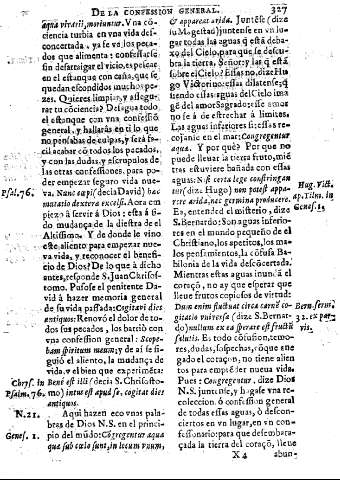 DE LA CONFESSION GENERAL. 327
aqua vivarii, moriuntur. Vna cõ-
ciencia turbia en vna vida des-
concertada, y ya se vè los peca-
dos que alimenta: confessarse
sin desarraigar el vicio, es pescar
en el estanque con caña, que se
quedan escondidos muchos pe-
zes. Quieres limpiar, y assegu-
rar tu cõciencia? Desagua todo
el estanque con vna confessiõ
general, y hallaràs en ti lo que
no pensabas de culpas, y serà fa-
cil acabar cõ todos los pecados,
y con las dudas, y escrupulos de
las otras confessiones, para po-
der empezar seguro vida nue-
Psal. 76. va. Nunc cœpi (decia David) hæc
mutatio dexteræ excelsi. Aora em-
piezo à servir à Dios: esta à si-
do mudança de la diestra de el
Altissimo. Y de donde le vino
este aliento para empezar nue-
va vida, y reconocer el benefi-
cio de Dios? De lo que à dicho
antes, responde S. Juan Chrisos-
tomo. Pusose el penitente Da-
vid à hazer memoria general
de su vida passada: Cogitavi dies
antiquos: Renovò el dolor de to-
dos sus pecados, los barriò con
vna confession general: Scope-
bam spiritum meum; y de ai se si-
guiò el aliento, la mudança de
vida, y el bien que experimẽta:
Chrys. in Benè est illi (decia S. Chrisosto-
Psalm. 76. mo) intus est apud se, cogitat dies
antiquos.
N. 21. Aqui hazen eco vnas pala-
bras de Dios N.S. en el princi-
Genes. 1. pio del mũdo: Cõgregentur aquæ
quæ sub cœlo sunt, in locum vnum,
& appareat arida. Juntẽse (dize
su Magestad) juntense en vn lu-
gar todas las aguas q̃ està deba-
xo del Cielo, para que se descu-
bra la tierra. Señor: y las q̃ està
sobre el Cielo? Essas no, dize Hu-
go Victorino: essas dilatense; q̃
siendo essas aguas del Cielo ima-
gẽ del amor Sagrado: ese amor
no se à de estrechar à limites.
Las aguas inferiores si: essas re-
cojanse en el mar: Congregentur
aquæ. Y por què? Por que no
puede llevar la tierra fruto, mié
tras estuviere bañada con essas
aguas: Nisi certa lege constringan
tur (dize Hugo) non potest appa- Hug. Vict.
rere arida, nec germina producere. ap. Tiln. in
Ea, entended el misterio, dize Genes. 1.
S. Bernardo: Son aguas inferio-
res en el mundo pequeño de el
Christiano, los apetitos, los ma-
los pensamientos, la cõfusa Ba-
bilonia de la vida descõcertada.
Mientras estas aguas inundã el
coraçõ, no ay que esperar que
lleve frutos copiosos de virtud:
Dum enim fluctuat circa carnẽ co- Bern. serm.
gitatio vniversa (dize S. Bernar- 32. ex par-
do) nullum ex ea sperare est fructũ vis.
salutis. Es todo cõfusion, temo-
res, dudas, sospechas, rõque ane
gado el coraçon, no tiene alien-
tos para empezar nueva vida.
Pues: Congregentur, dize Dios
N.S. juntense, y hagase vna re-
coleccion, ò confession general
de todas essas aguas, ò descon-
ciertos en vn lugar, en vn con-
fessionario: para que desembara-
çada la tierra del coraçõ, lleve
X 4 abun-